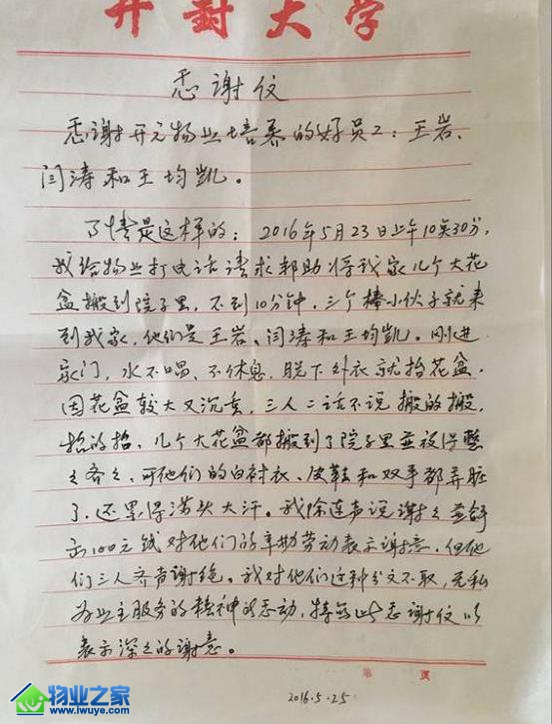 开封大学
感谢信
感谢开元物业培养的好员工：王岩、
闫涛和王均凯。
事情是这样的：2016年5月23日上午10点30分，
我给物业打电话请求帮助将我家几个大花
盆搬到院子里，不到10分钟，三个棒小伙子就来
到我家，他们是王岩、闫涛和王均凯。刚进
家门，水不喝、不休息，脱下外衣就抬花盆。
因花盆较大又沉重，三人二话不说搬的搬，
抬的抬，几个大花盆都搬到了院子里并放得整
整齐齐，可他们的白衬衣、皮鞋和双手都弄脏
了，还累得满头大汗。我除连声说谢谢并拿
出100元钱对他们的辛勤劳动表示谢意，但他
们三人齐声谢绝。我对他们这种分文不取，无私
为业主服务的精神所感动，特写此感谢信以
表示深深的谢意。
第 页
2016.5.25
物业之家
www.iwuye.com